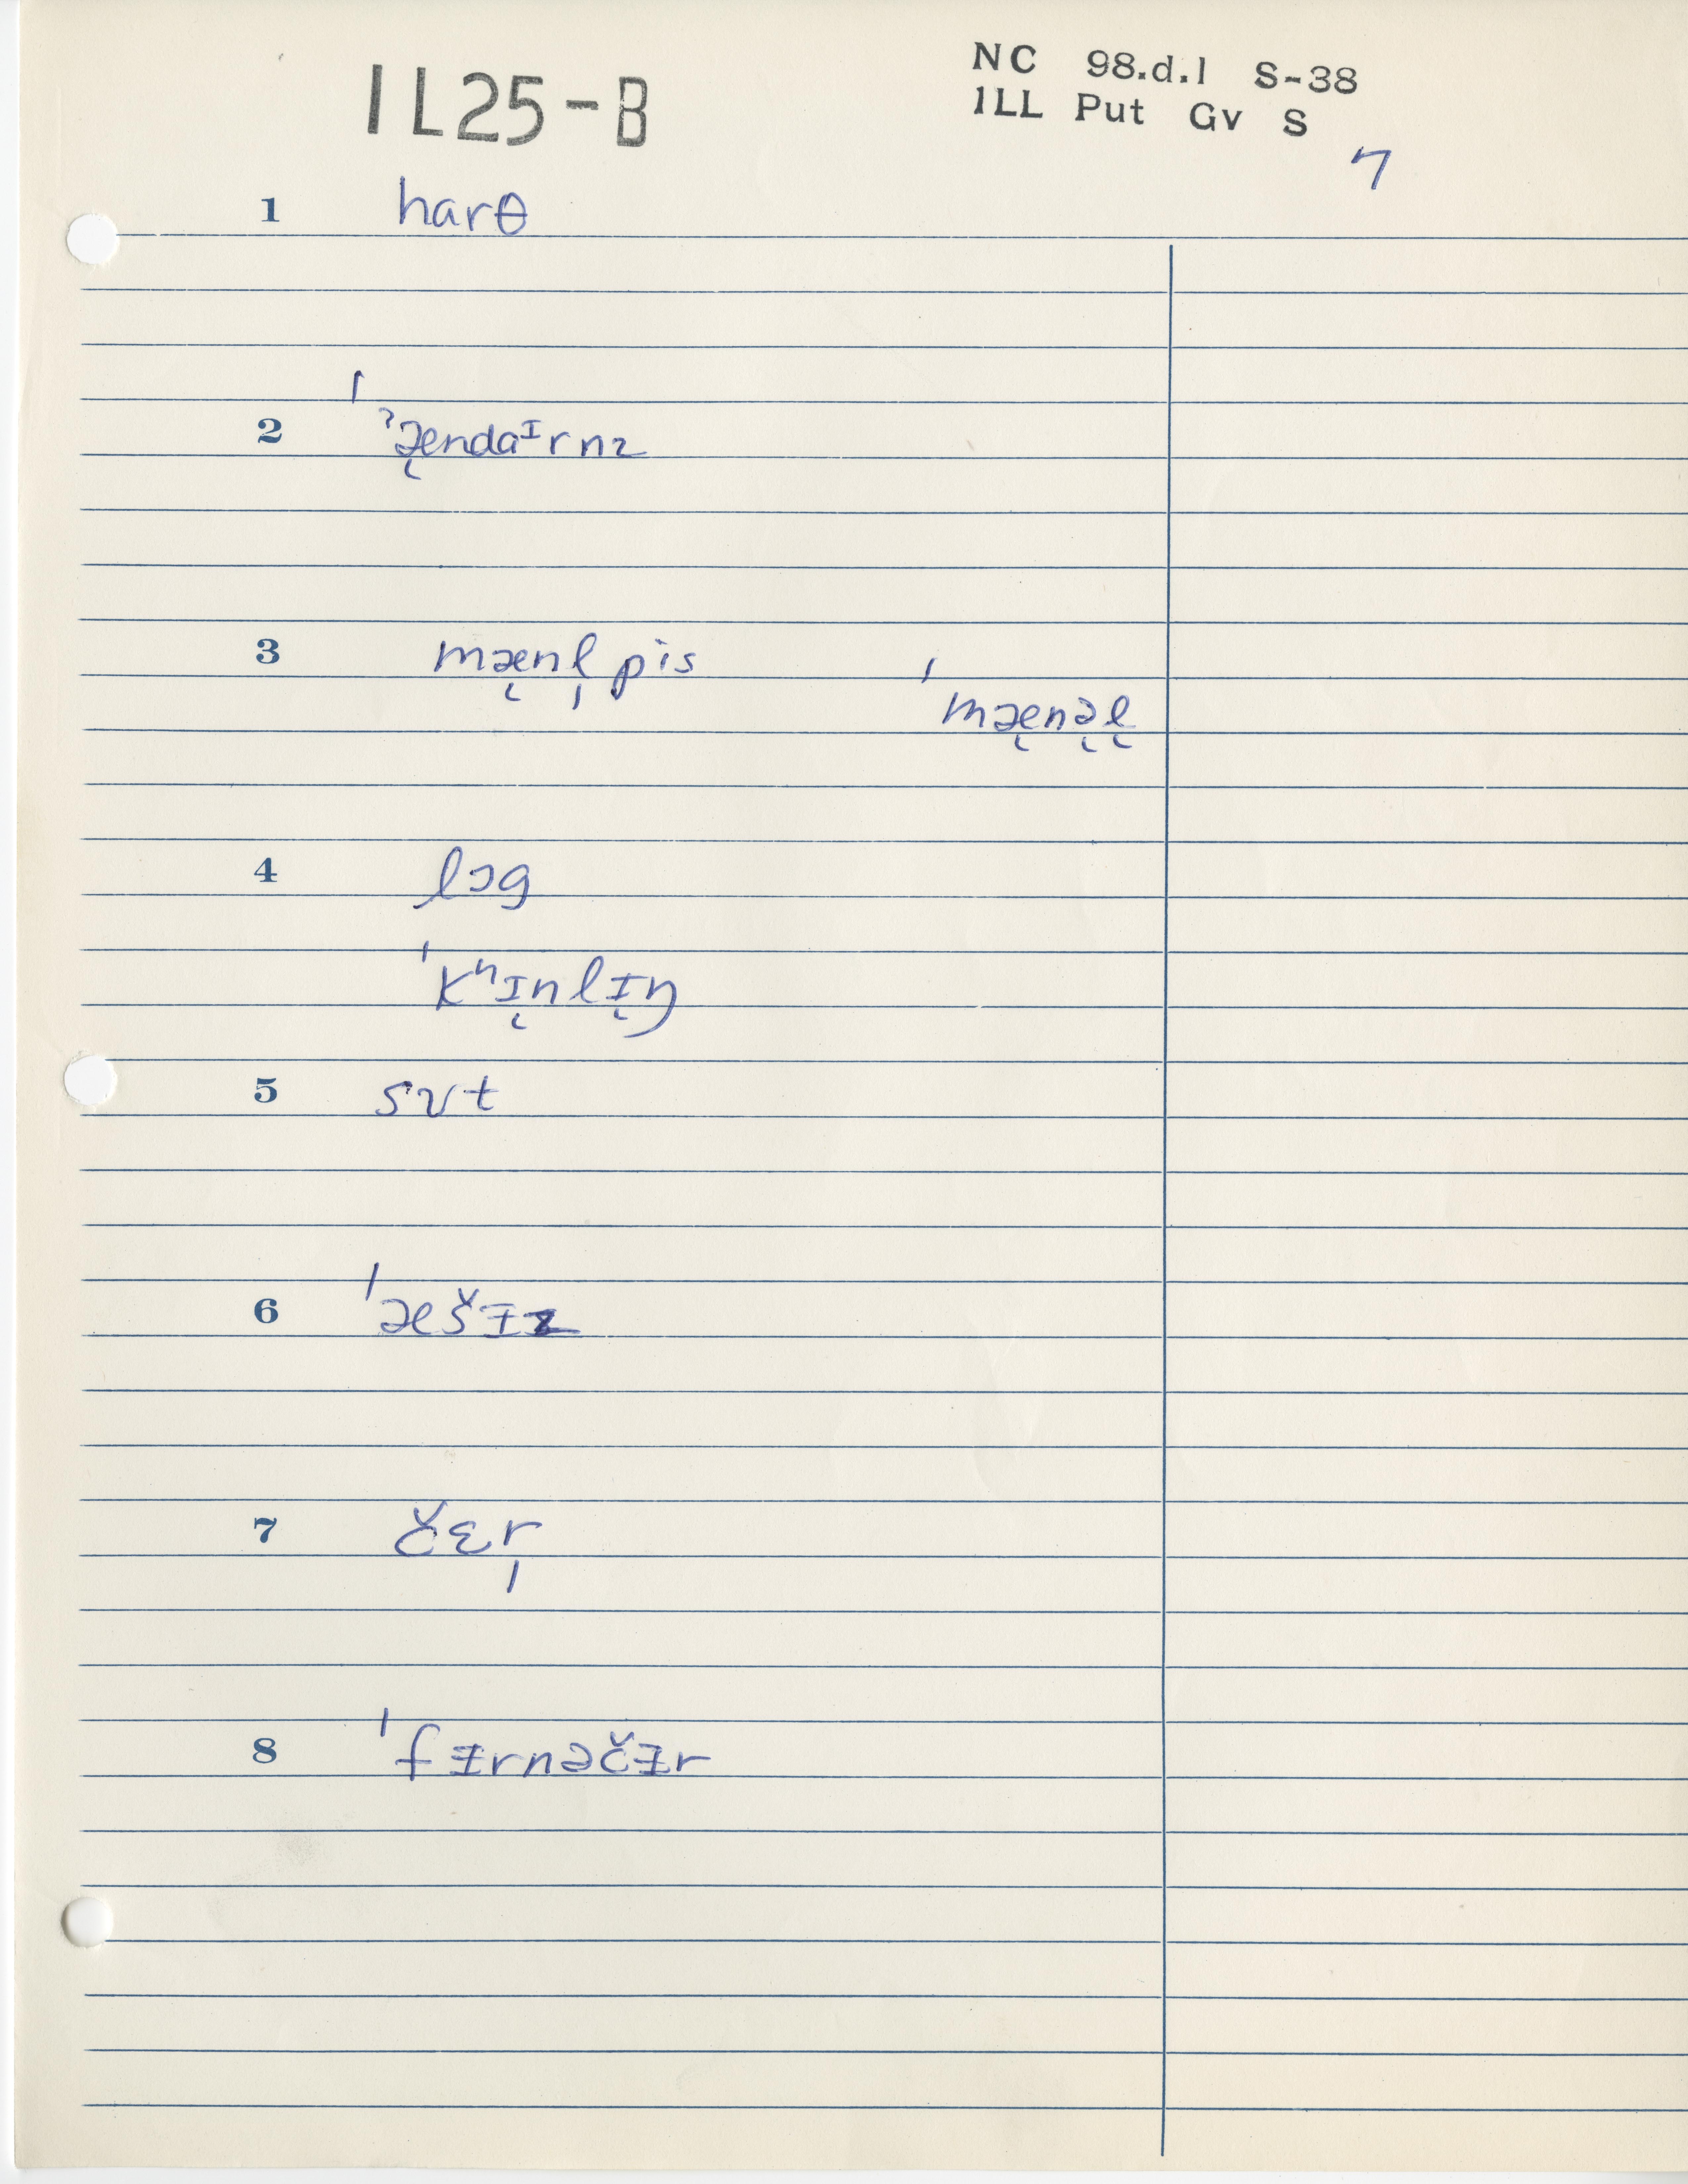 1L25-B
NC 98.d.1 S-38
1LL Put Gv S
7
1 harθ
2 ˈˀæ̨ndaᶦrnz
3 mæ̨nl̩ pis
ˈmæ̨nə̨l̨
4 lɔg
ˈkʰɪ̨nlɪ̨ŋ
5 sʊt
6 ˈæšɪz
7 čɛr̩
8 ˈfɪrnəčɪr